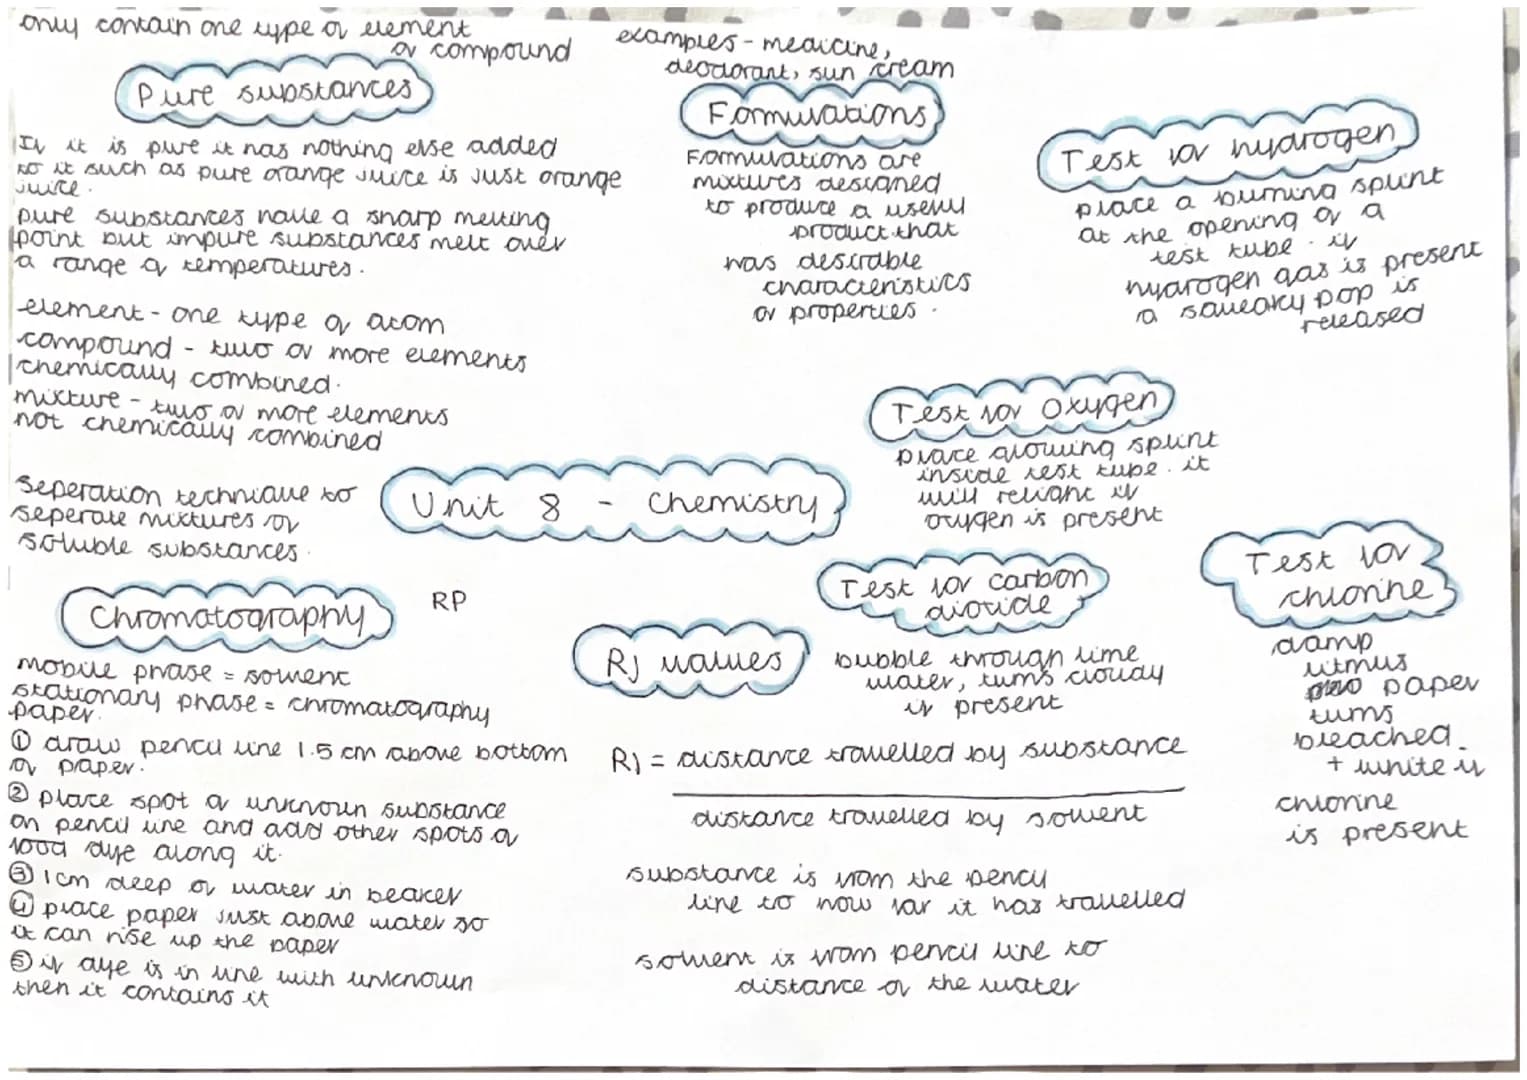 only contain one type of element
or compound
Pure substances
If it is pure it has nothing else added
to it such as pure orange juice is just orange
juice.
pure substances have a sharp melting
point but impure substances melt over
a range of temperatures.
element - one type of atom
compound - two or more elements
chemically combined.
mixture - two or more elements
not chemically combined
seperation technique to
seperate mixtures of
soluble substances.
Unit 8 - Chemistry
Chromatography
RP
mobile phase = solvent
stationary phase = chromatography
paper.
① draw pencil line 1.5 cm above bottom
of paper.
② place spot of unknown substance
on pencil line and add other spots of
food dye along it.
③ 1cm deep of water in beaker
④ place paper just above water so
it can rise up the paper
⑤ if dye is in line with unknown
then it contains it
examples - medicine,
deodorant, sun cream
Formulations
Formulations are
mixtures designed
to produce a useful
product that
has desirable
characteristics
or properties.
Test for hydrogen
place a burning splint
at the opening of a
test tube. if
hydrogen gas is present
a squeaky pop is
released
Test for Oxygen
place glowing splint
inside test tube. it
will relight if
oxygen is present
Test for carbon
dioxide
bubble through lime
water, turns cloudy
if present
Test for
chlorine
damp
litmus
paper
turns
bleached.
+ white if
chlorine
is present
Rf values
Rf = distance travelled by substance
distance travelled by solvent
substance is from the pencil
line to how far it has travelled
solvent is from pencil line to
distance of the water